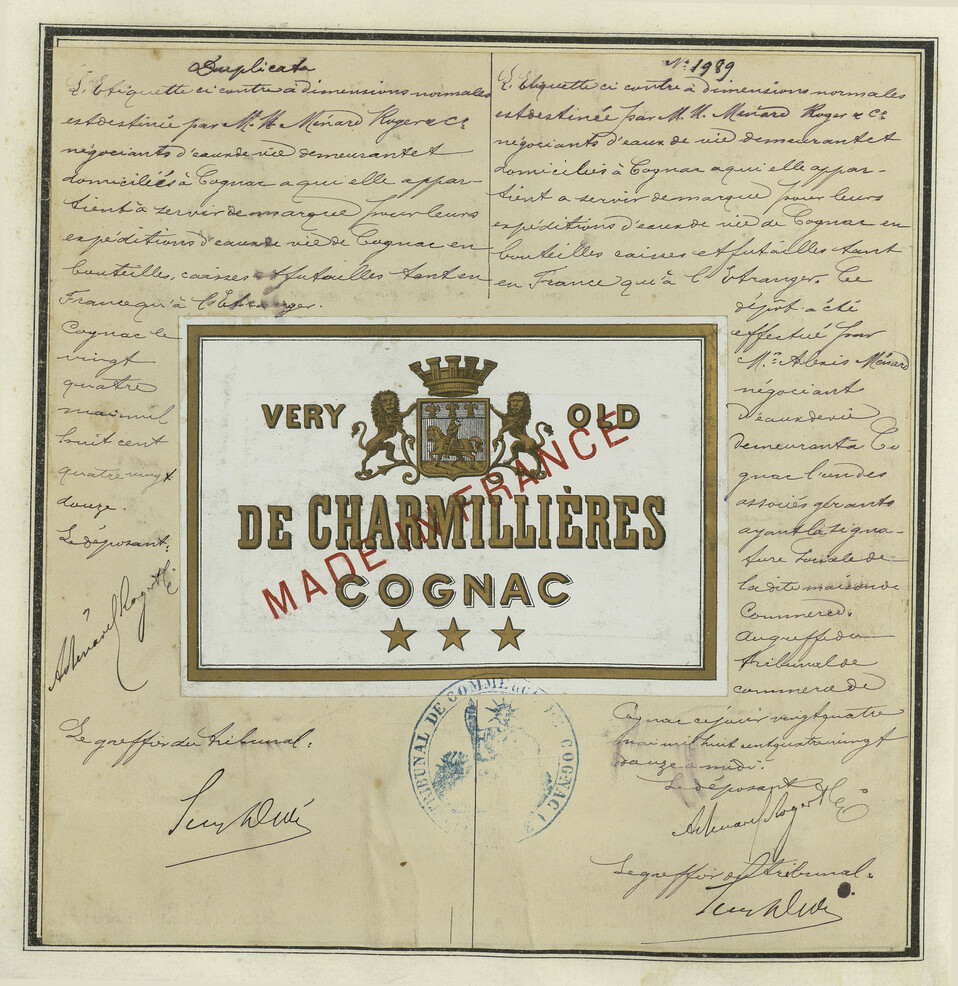 Duplicata
L'Etiquette ci contre à dimensions normales
est destinée par Mr. M. Ménard Roger & Cie
négociants d'eaux de vie demeurant et
domiciliés à Cognac a qui elle appar-
tient à servir de marque pour leurs
expéditions d'eaux de vie de Cognac en
bouteilles, caisses et futailles tant en
France qu'à l'Etranger.
Cognac le
vingt
quatre
mai mil
huit cent
quatre vingt
douze.
Le déposant:
A Ménard Roger & Cie
Le greffier du tribunal:
No. 1989
L'Etiquette ci contre à dimensions normales
est destinée par M. M. Ménard Roger & Cie
négociants d'eaux de vie demeurant et
domiciliés à Cognac a qui elle appar-
tient a servir de marque pour leurs
expéditions d'eaux de vie de Cognac en
bouteilles caisses et futailles tant
en France qu'à l'Etranger. Ce
dépôt a été
effectué par
Mr. Alexis Ménard
négociant
d'eaux de vie
demeurant à Co
gnac l'un des
associés gérants
ayant la signa-
ture sociale de
la dite maison de
Commerce.
Au greffe du
tribunal de
commerce de
Cognac ce jour vingt quatre
mai mil huit cent quatre vingt
douze a midi.
Le déposant
A Ménard Roger & Cie
Le greffier du tribunal:
VERY OLD
DE CHARMILLIÈRES
COGNAC
MADE IN FRANCE
TRIBUNAL DE COMMERCE DE COGNAC